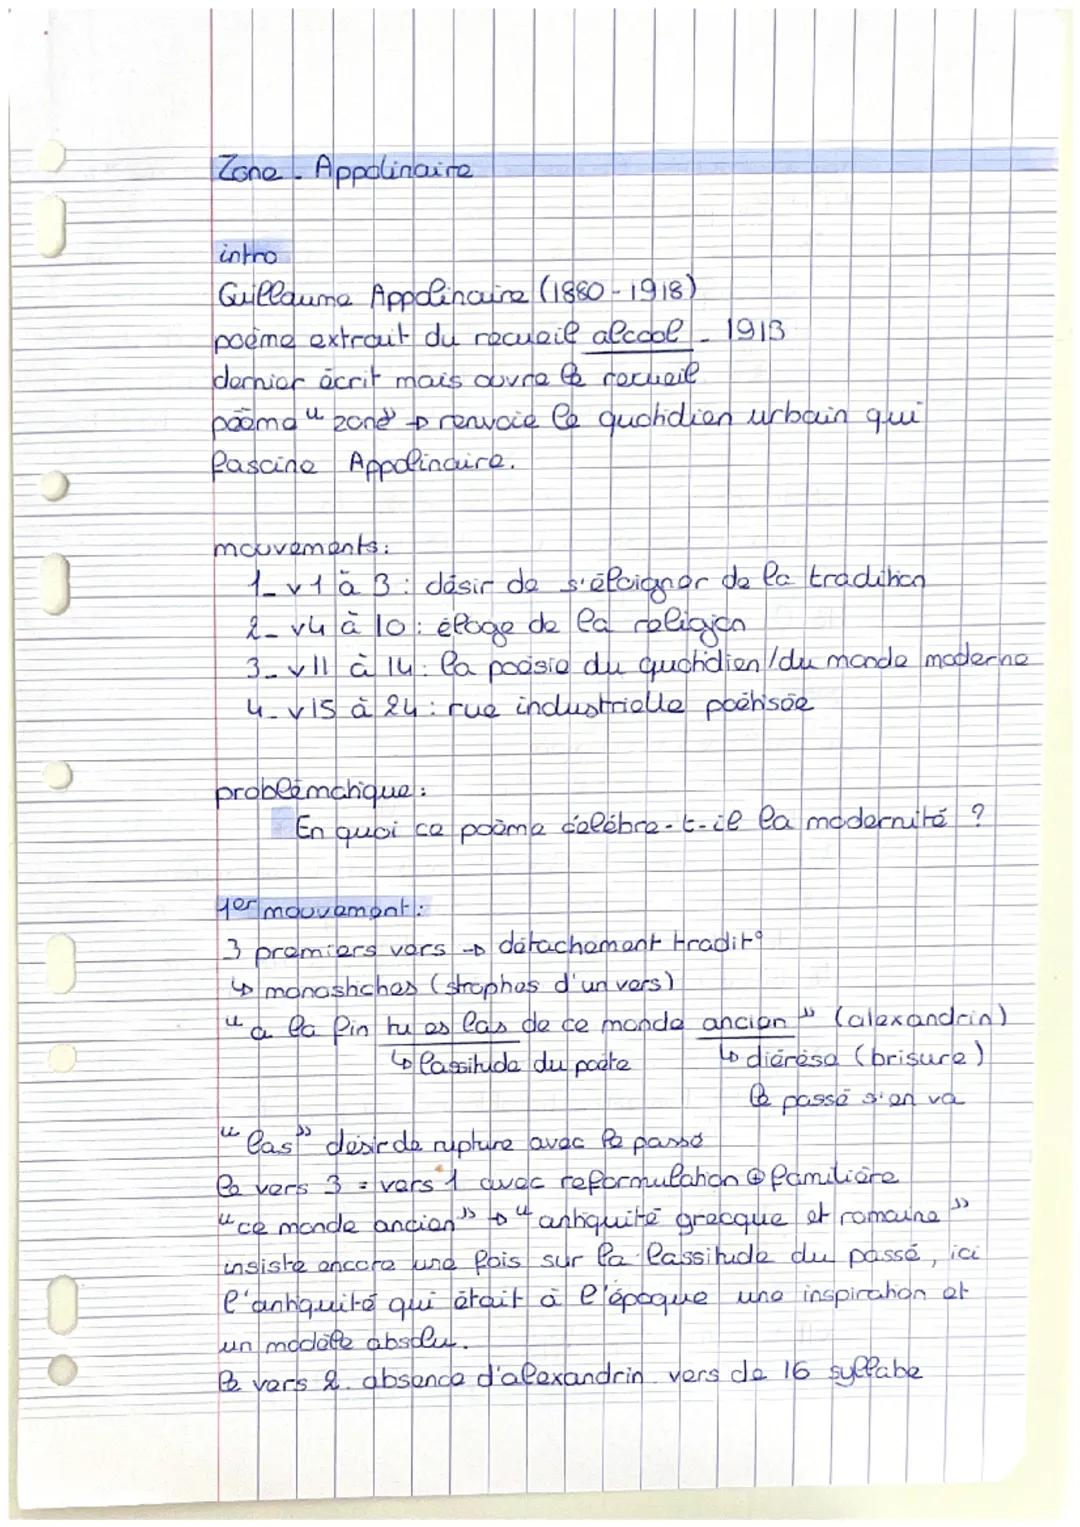 Zone - Appolinaire
intro
Guillaume Appolinaire (1880 - 1918)
poème extrait du recueil alcool - 1913
dernier écrit mais ouvre le recueil
poème "zone" → renvoie le quotidien urbain qui
fascine Appolinaire.
mouvements:
1- v1 à 3 : désir de s'éloigner de la tradition
2- v4 à 10 : éloge de la religion
3- v11 à 14 : la poésie du quotidien / du monde moderne
4- v15 à 24 : rue industrielle poétisée
problématique :
En quoi ce poème célèbre-t-il la modernité ?
1er mouvement :
3 premiers vers → détachement tradit°
↳ monostiches (strophes d'un vers)
"a la fin tu es las de ce monde ancien" (alexandrin)
↳ lassitude du poète ↳ diérèse (brisure)
le passé s'en va
"las" désir de rupture avec le passé
le vers 3 = vers 1 avec reformulation ⊕ familière
"ce monde ancien" → "antiquité grecque et romaine"
insiste encore une fois sur la lassitude du passé, ici
l'antiquité qui était à l'époque une inspiration et
un modèle absolu.
le vers 2. absence d'alexandrin vers de 16 syllabe